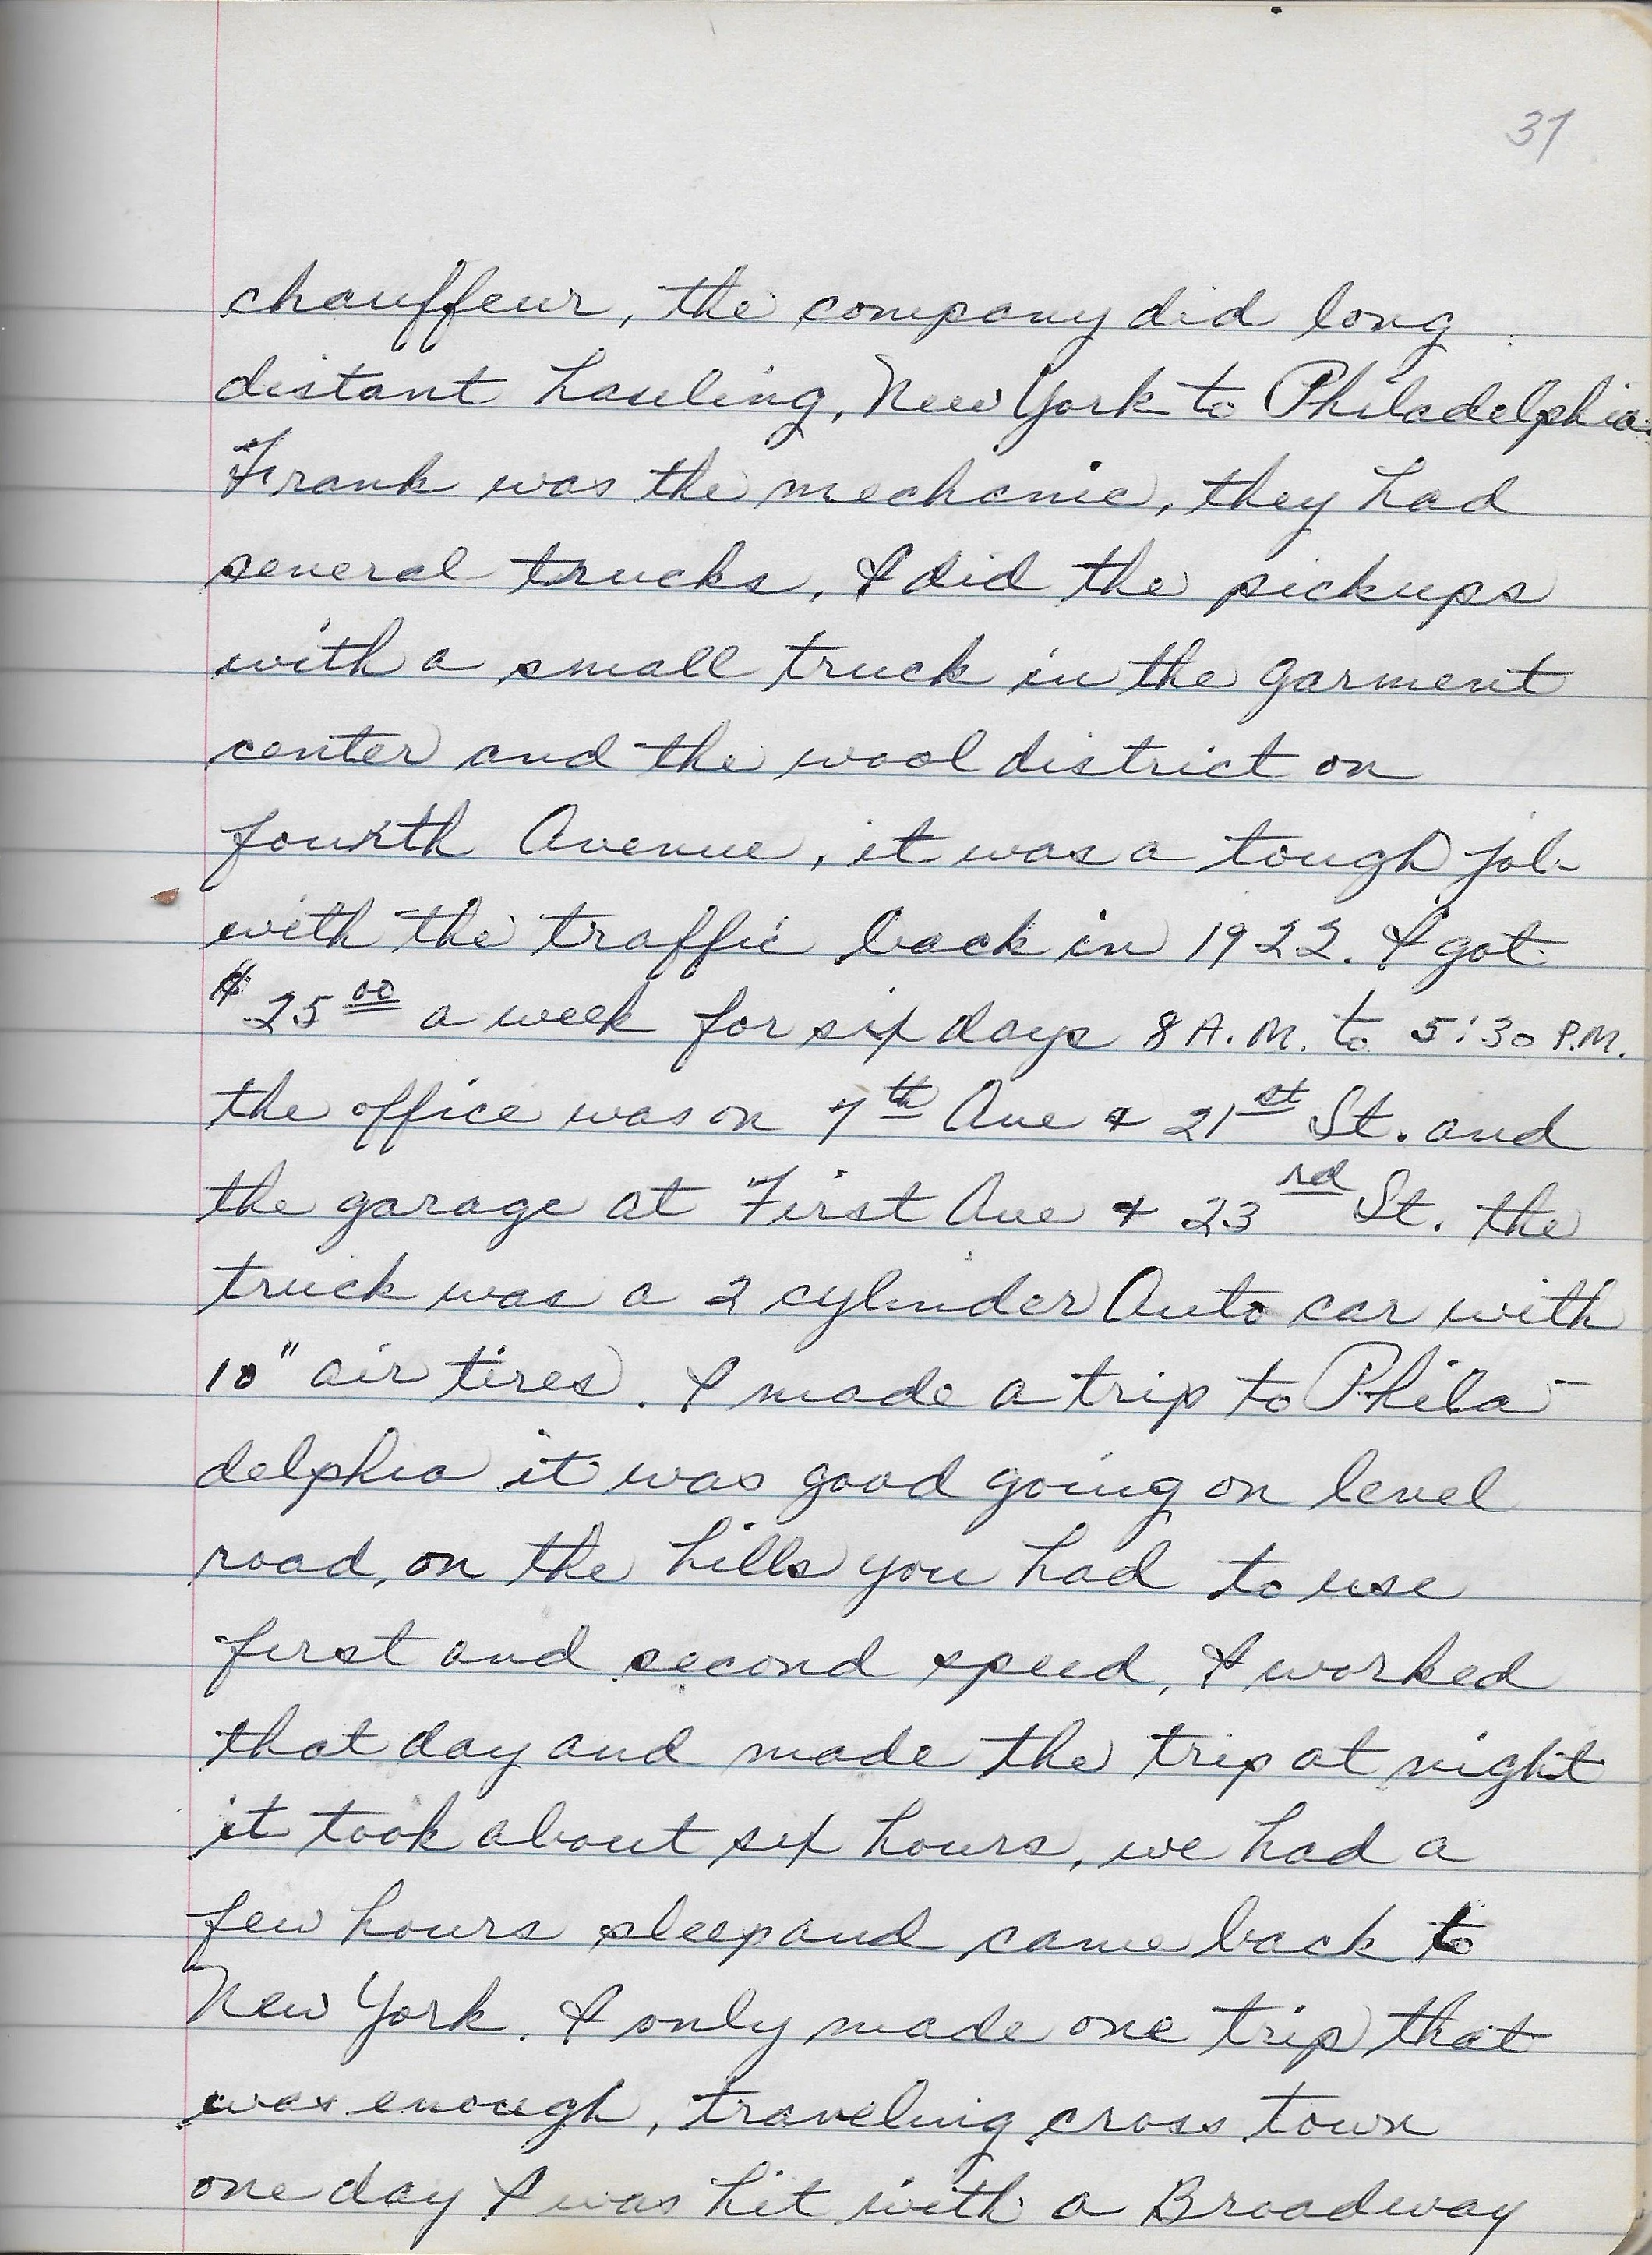 37
chauffeur, the company did long
distant hauling, New York to Philadelphia.
Frank was the mechanic, they had
several trucks, I did the pickups
with a small truck in the garment
center and the wool district on
fourth Avenue, it was a tough job
with the traffic back in 1922. I got
$25.00 a week for six days 8 A.M. to 5:30 P.M.
the office was on 7th Ave & 21st St. and
the garage at First Ave & 23rd St. the
truck was a 2 cylinder Auto car with
10" air tires. I made a trip to Phila-
delphia it was good going on level
road, on the hills you had to use
first and second speed, I worked
that day and made the trip at night
it took about six hours, we had a
few hours sleep and came back to
New York. I only made one trip that
was enough, traveling cross town
one day I was hit with a Broadway